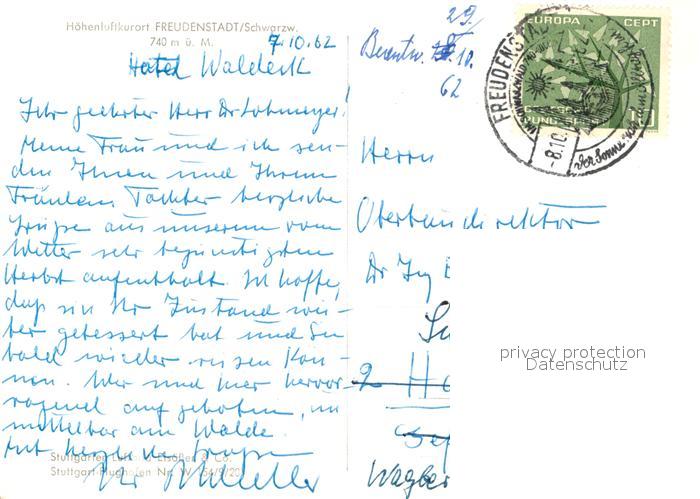 Höhenluftkurort FREUDENSTADT/Schwarzw.
740 m ü. M.
7.10.62
Hotel Waldeck
Sehr geehrter Herr Dr
Meine Frau und ich sen-
den Ihnen und Ihrem
Fräulein Tochter herzliche
Grüße aus unserem vom
Wetter sehr begünstigten
Herbstaufenthalt. Ich hoffe,
daß sich Ihr Zustand wei-
ter gebessert hat und Sie
bald wieder reisen kön-
nen. Wir sind hier hervor-
ragend aufgehoben, un
mittelbar am Walde.
Mit herzlichen Grüßen
Ihr
Stuttgarter Luftbild Elsäßer & Co.
Stuttgart-Flughafen Nr.
29/
10.
62
EUROPA CEPT
FREUDENSTADT
-8.10.
Herrn
Oberbaudirektor
Dr Ing
privacy protection
Datenschutz